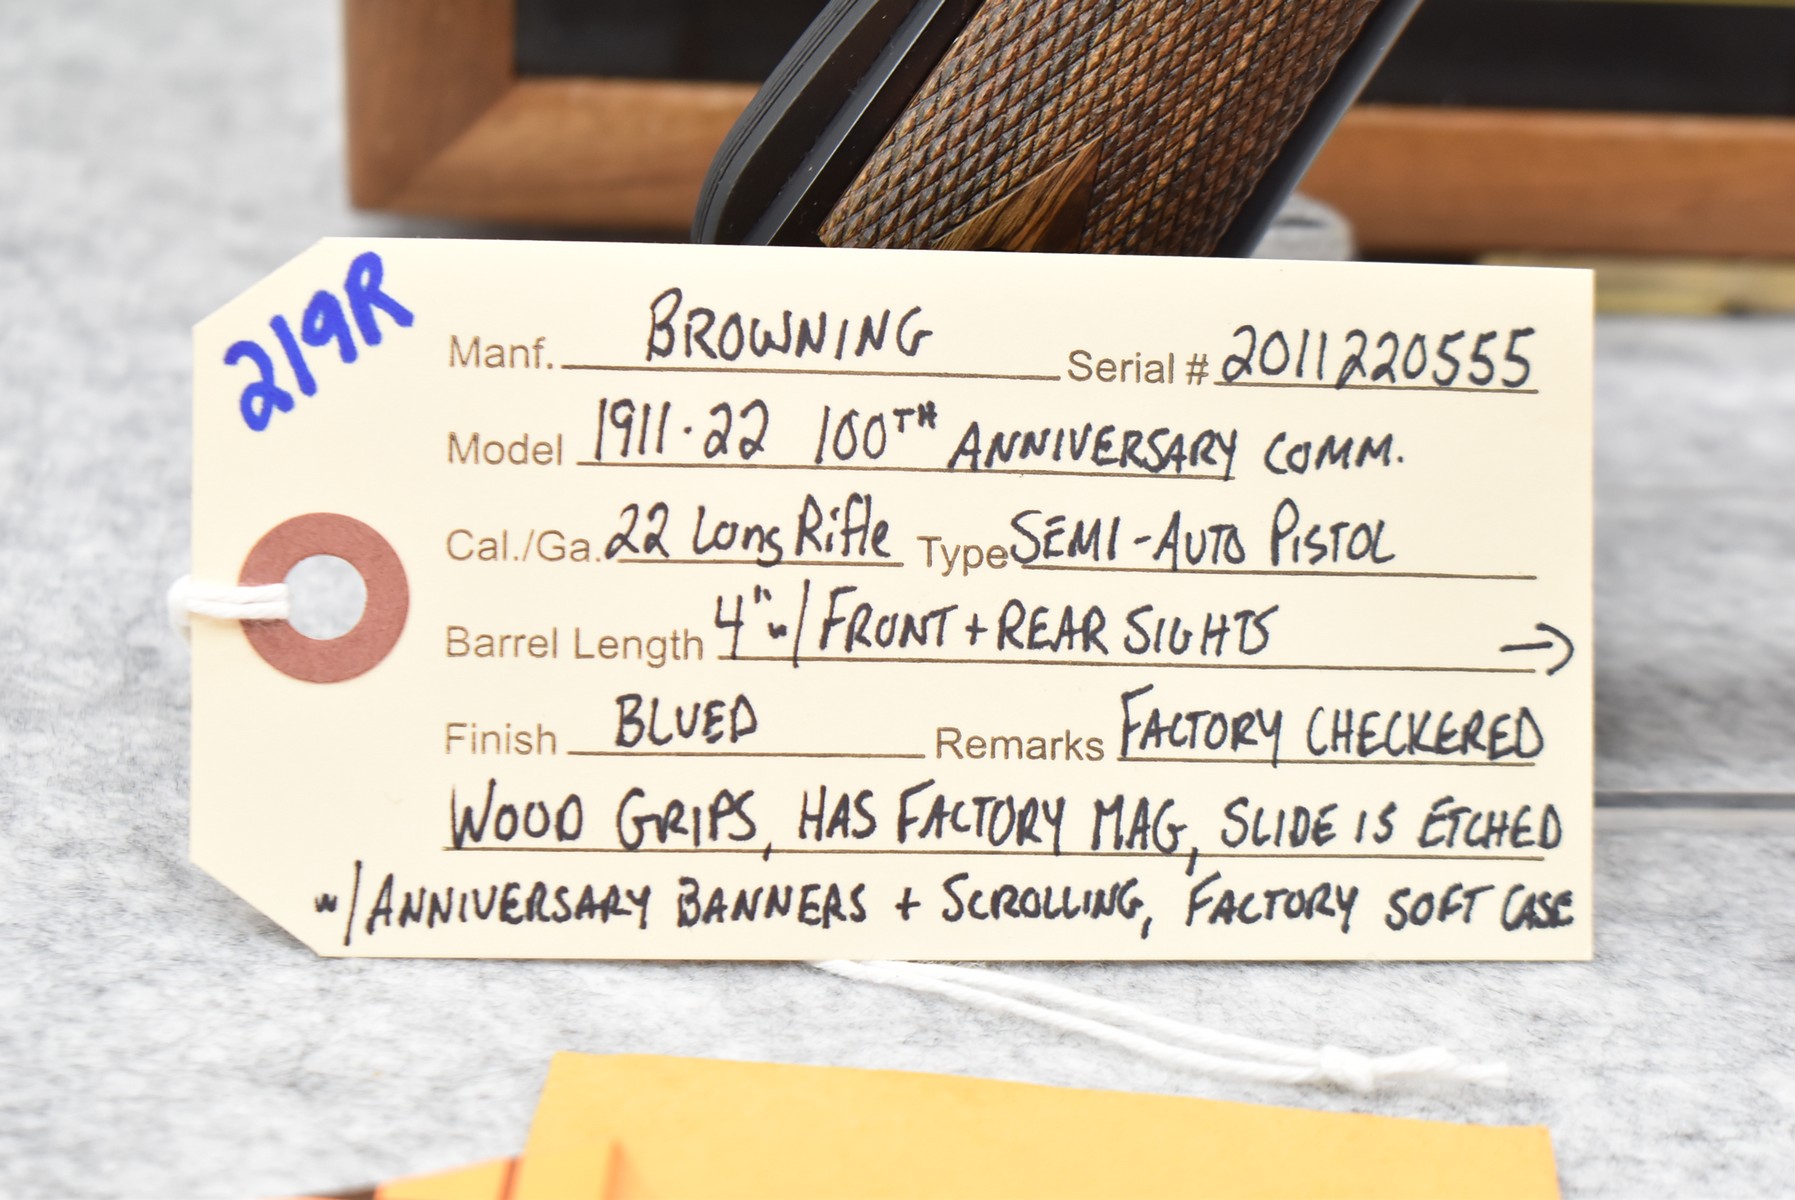 219R
Manf. BROWNING Serial # 2011220555
Model 1911·22 100TH ANNIVERSARY COMM.
Cal./Ga. 22 Long Rifle Type SEMI-AUTO PISTOL
Barrel Length 4" w/ FRONT + REAR SIGHTS →
Finish BLUED Remarks FACTORY CHECKERED
WOOD GRIPS, HAS FACTORY MAG, SLIDE IS ETCHED
w/ ANNIVERSARY BANNERS + SCROLLING, FACTORY SOFT CASE